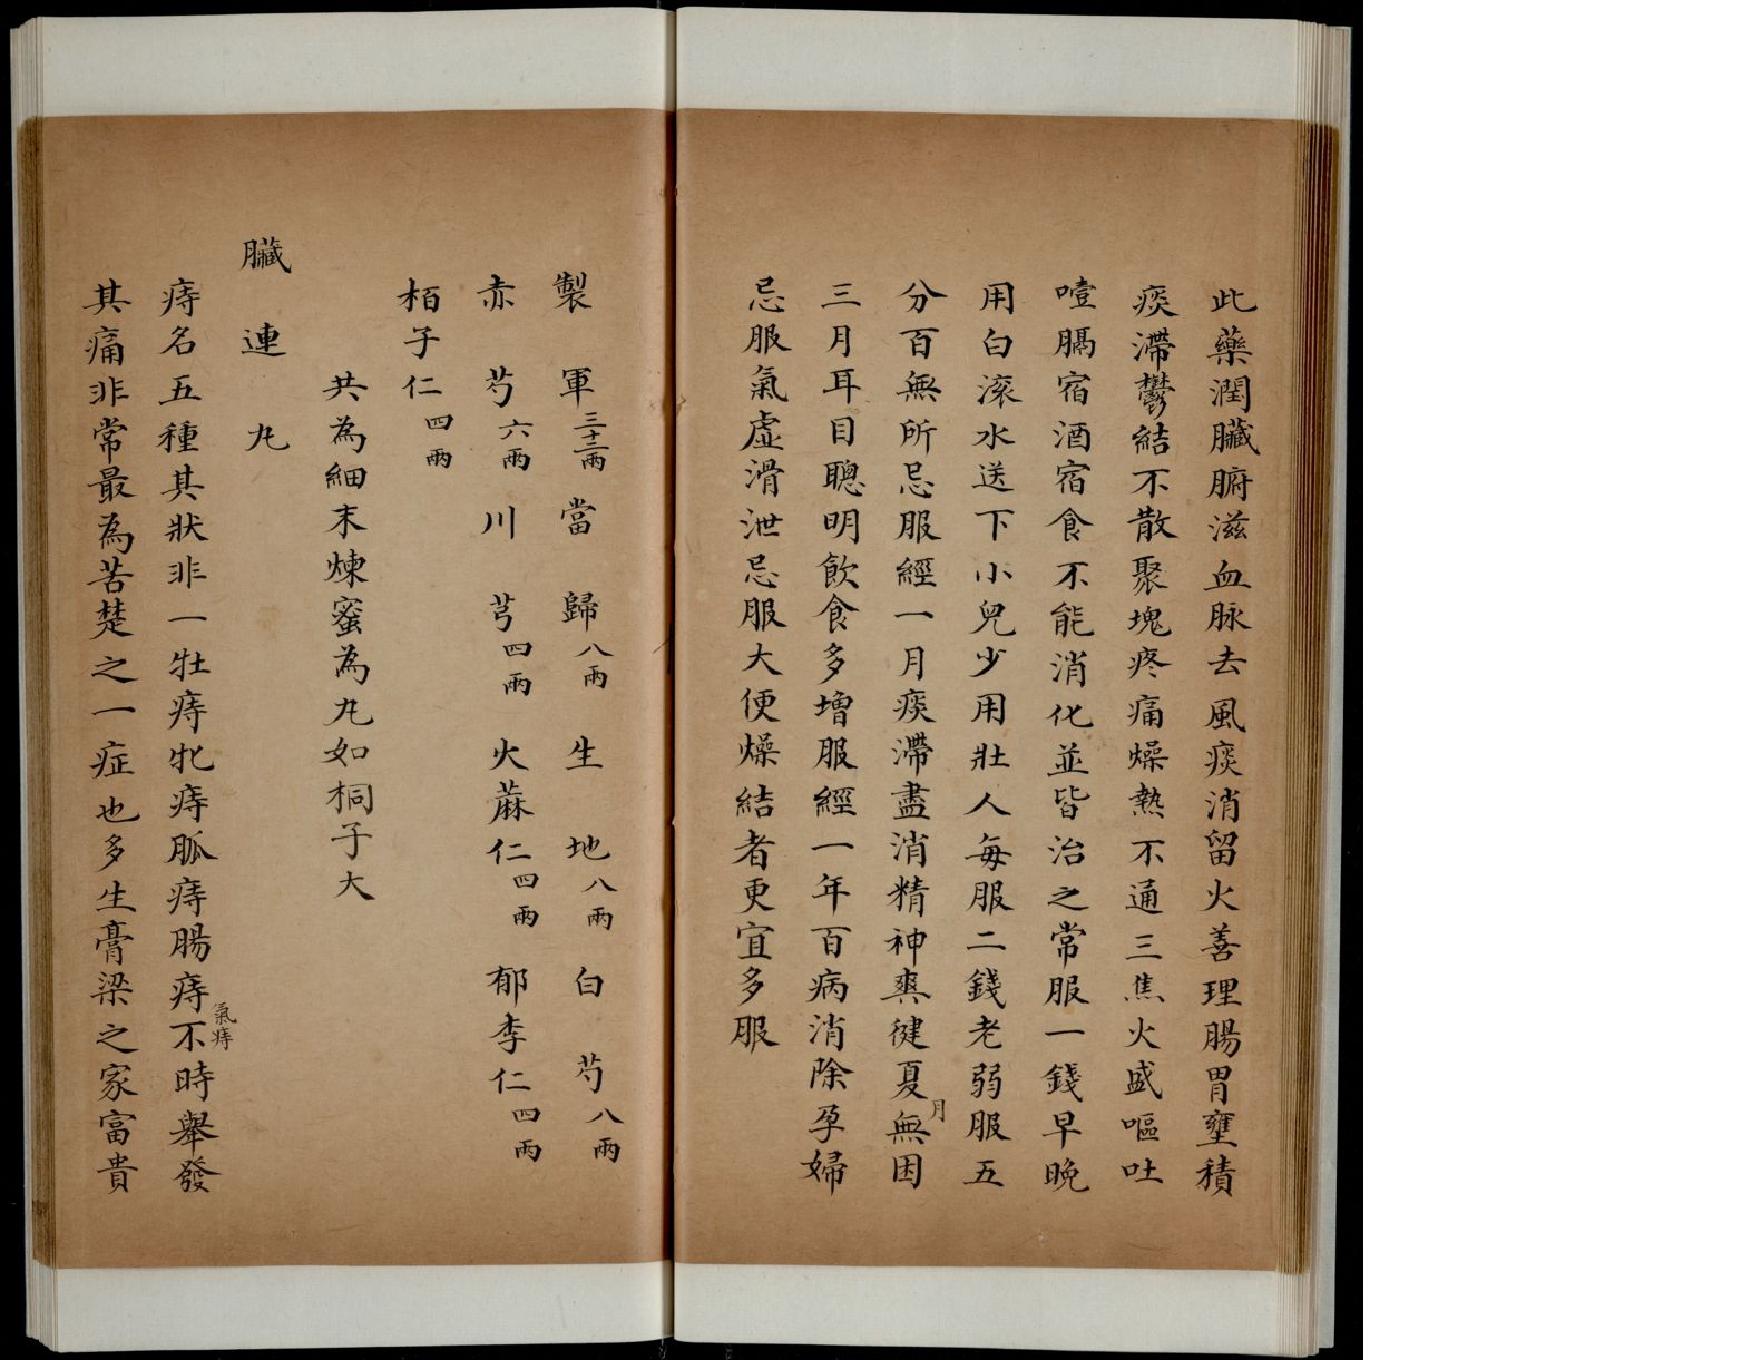 此藥潤臟腑滋血脉去風痰消留火善理腸胃壅積
痰滯鬱結不散聚塊疼痛燥熱不通三焦火盛嘔吐
噎膈宿酒宿食不能消化並皆治之常服一錢早晚
用白滚水送下小兒少用壯人每服二錢老弱服五
分百無所忌服經一月痰滯盡消精神爽健夏月無困
三月耳目聰明飲食多增服經一年百病消除孕婦
忌服氣虛滑泄忌服大便燥結者更宜多服
製軍三十二兩 當歸八兩 生地八兩 白芍八兩
赤芍六兩 川芎四兩 火蔴仁四兩 郁李仁四兩
栢子仁四兩
共為細末煉蜜為丸如桐子大
臟連丸
痔名五種其狀非一牡痔牝痔脈痔腸痔氣痔不時舉發
其痛非常最為苦楚之一症也多生膏梁之家富貴